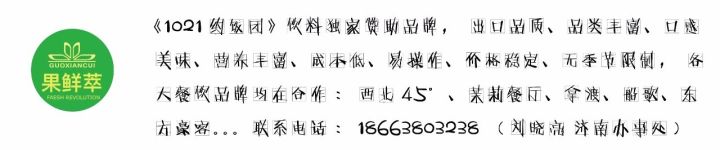 《1021约饭团》饮料独家赞助品牌， 出口品质、品类丰富、口感
美味、营养丰富、成本低、易操作、价格稳定、无季节限制， 各
大餐饮品牌均在合作：西北 45°、茉莉餐厅、拿渡、船歌、东
方豪客... 联系电话：18663803238 （刘晓亮 济南办事处）
GUOXIANCUI
果鲜萃
FRESH REVOLUTION